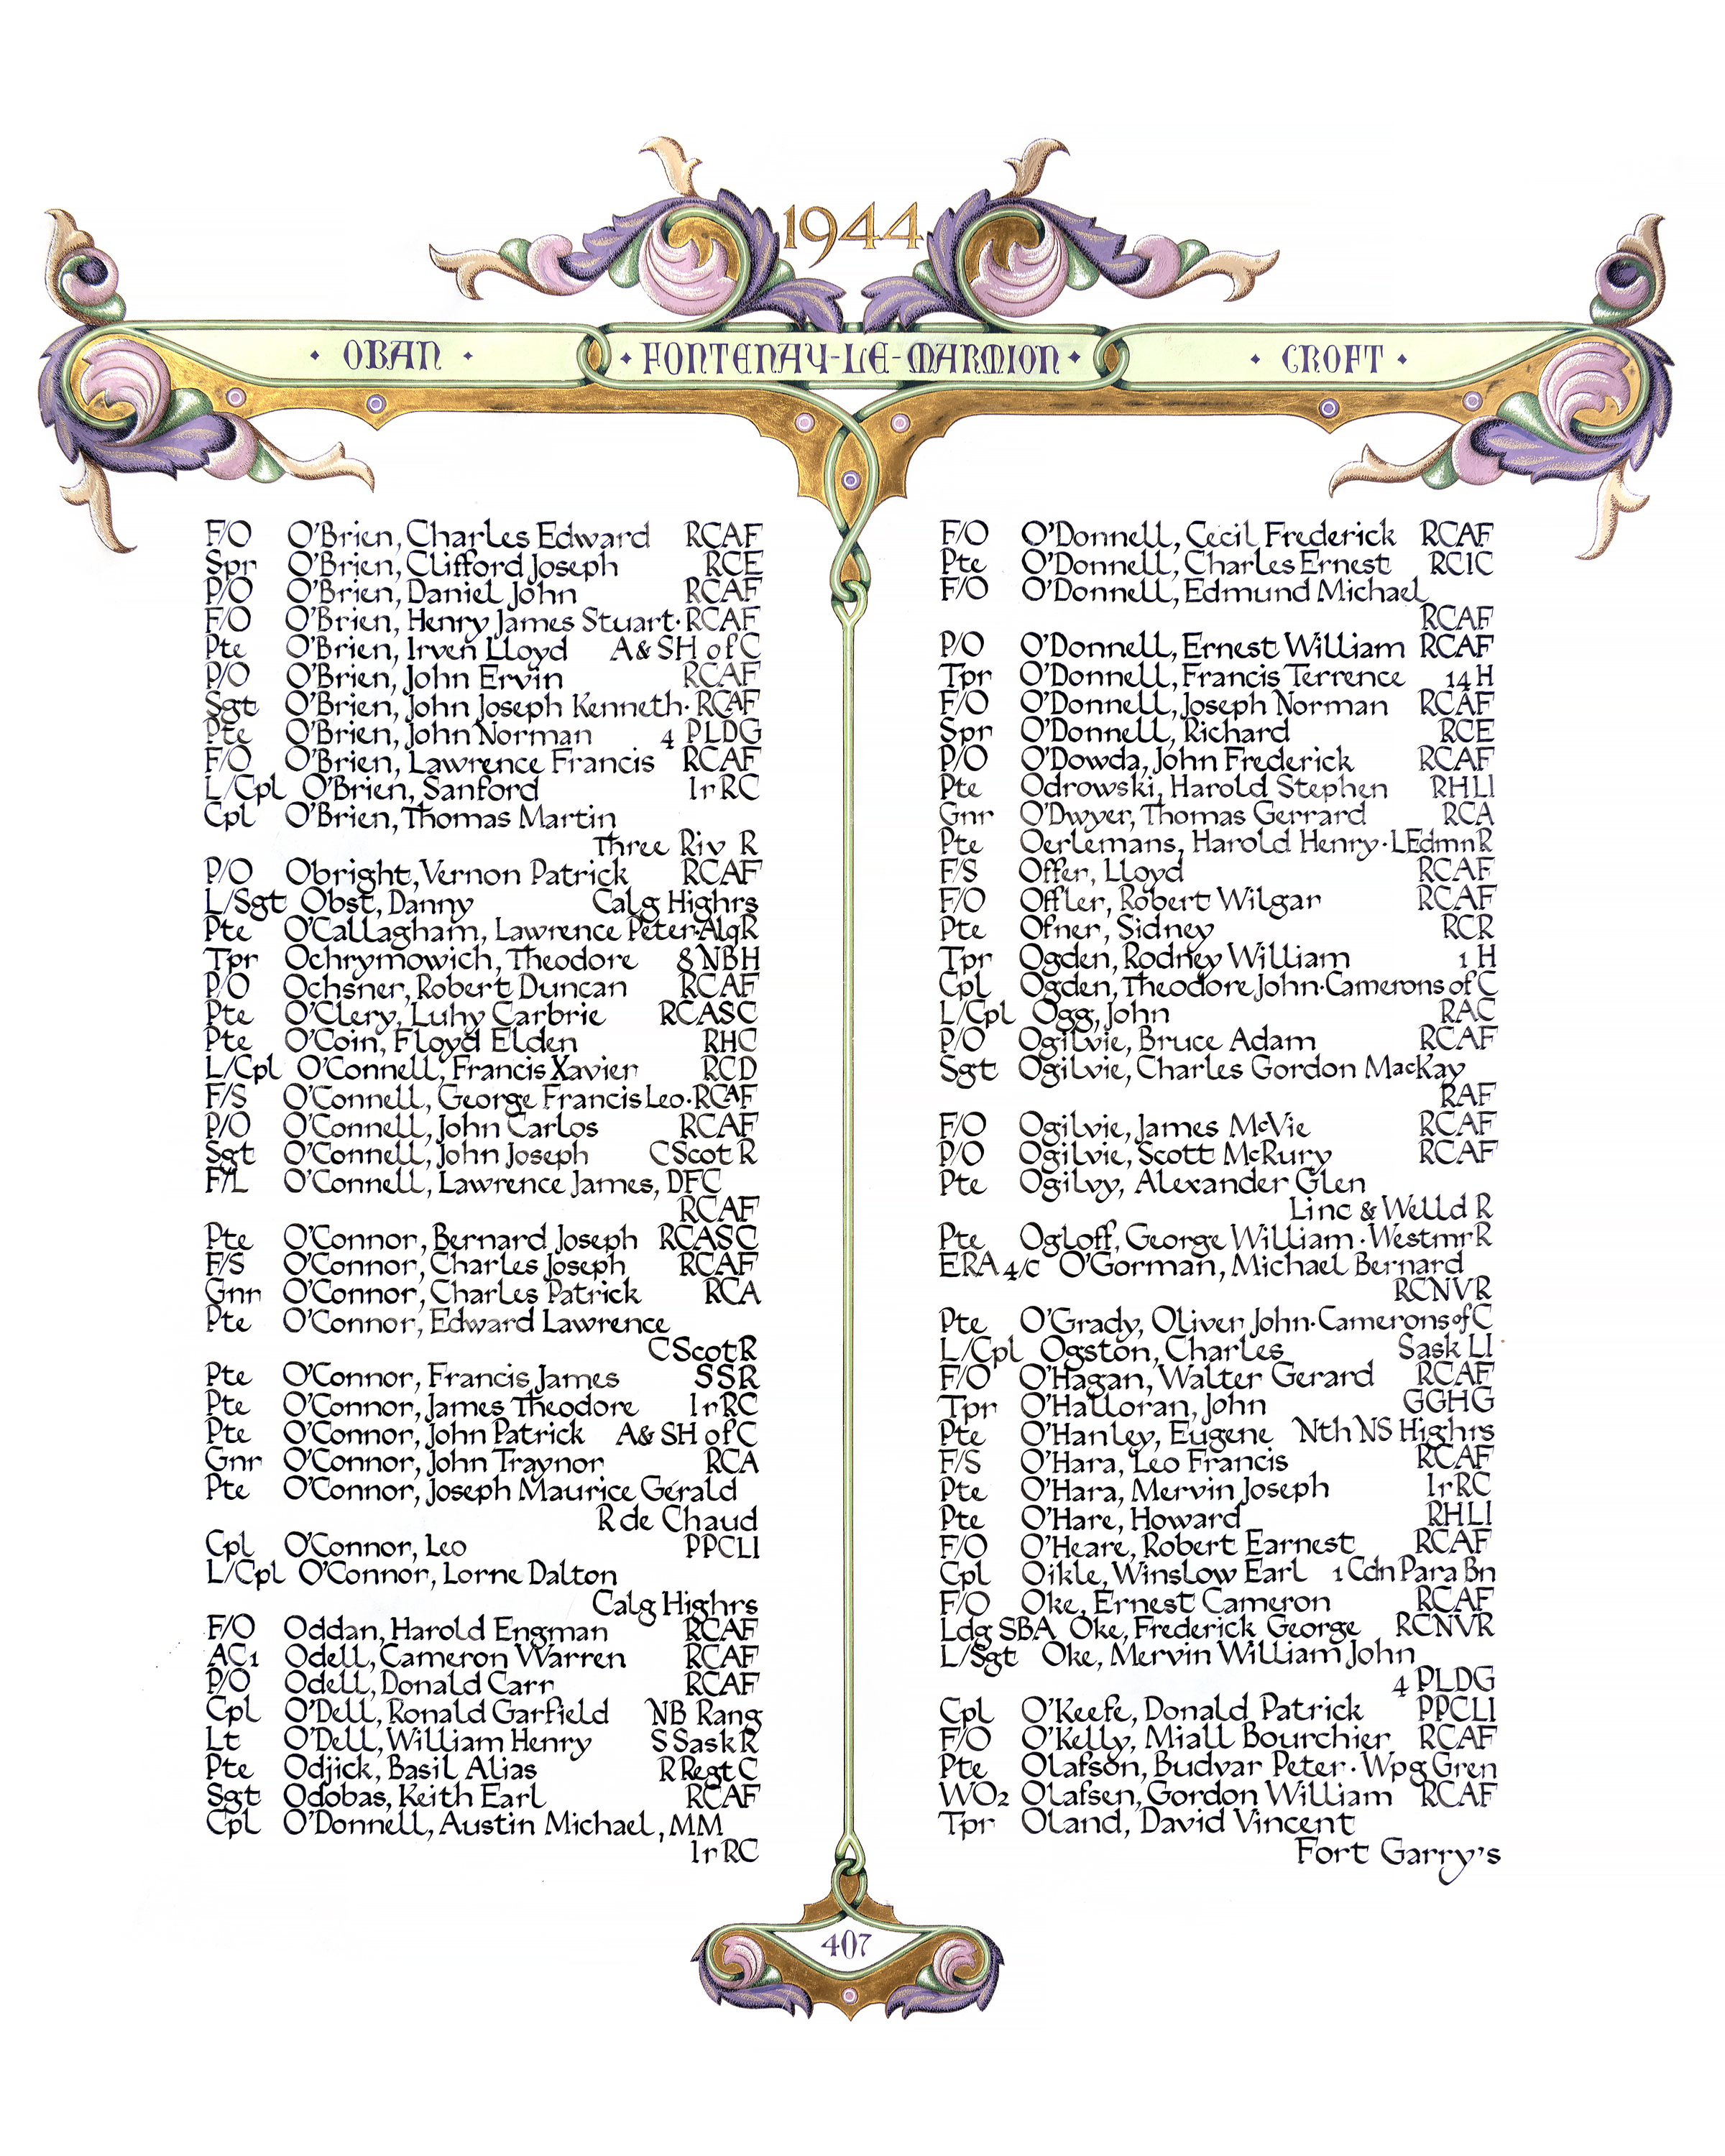 1944
OBAN
FONTENAY-LE-MARMION
CROFT
F/O O'Brien, Charles Edward RCAF
Spr O'Brien, Clifford Joseph RCE
P/O O'Brien, Daniel John RCAF
F/O O'Brien, Henry James Stuart·RCAF
Pte O'Brien, Irven Lloyd A&SH of C
P/O O'Brien, John Ervin RCAF
Sgt O'Brien, John Joseph Kenneth·RCAF
Pte O'Brien, John Norman 4 PLDG
F/O O'Brien, Lawrence Francis RCAF
L/Cpl O'Brien, Sanford Ir RC
Cpl O'Brien, Thomas Martin
Three Riv R
P/O Obright, Vernon Patrick RCAF
L/Sgt Obst, Danny Calg Highrs
Pte O'Callagham, Lawrence Peter·AlqR
Tpr Ochrymowich, Theodore 8 NBH
P/O Ochsner, Robert Duncan RCAF
Pte O'Clery, Luhy Carbrie RCASC
Pte O'Coin, Floyd Elden RHC
L/Cpl O'Connell, Francis Xavier RCD
F/S O'Connell, George Francis Leo·RCAF
P/O O'Connell, John Carlos RCAF
Sgt O'Connell, John Joseph C Scot R
F/L O'Connell, Lawrence James, DFC
RCAF
Pte O'Connor, Bernard Joseph RCASC
F/S O'Connor, Charles Joseph RCAF
Gnr O'Connor, Charles Patrick RCA
Pte O'Connor, Edward Lawrence
C Scot R
Pte O'Connor, Francis James SSR
Pte O'Connor, James Theodore Ir RC
Pte O'Connor, John Patrick A&SH of C
Gnr O'Connor, John Traynor RCA
Pte O'Connor, Joseph Maurice Gérald
R de Chaud
Cpl O'Connor, Leo PPCLI
L/Cpl O'Connor, Lorne Dalton
Calg Highrs
F/O Oddan, Harold Engman RCAF
AC1 Odell, Cameron Warren RCAF
P/O Odell, Donald Carr RCAF
Cpl O'Dell, Ronald Garfield NB Rang
Lt O'Dell, William Henry S Sask R
Pte Odjick, Basil Alias R Regt C
Sgt Odobas, Keith Earl RCAF
Cpl O'Donnell, Austin Michael, MM
Ir RC
F/O O'Donnell, Cecil Frederick RCAF
Pte O'Donnell, Charles Ernest RCIC
F/O O'Donnell, Edmund Michael
RCAF
P/O O'Donnell, Ernest William RCAF
Tpr O'Donnell, Francis Terrence 14 H
F/O O'Donnell, Joseph Norman RCAF
Spr O'Donnell, Richard RCE
P/O O'Dowda, John Frederick RCAF
Pte Odrowski, Harold Stephen RHLI
Gnr O'Dwyer, Thomas Gerrard RCA
Pte Oerlemans, Harold Henry·LEdmnR
F/S Offer, Lloyd RCAF
F/O Offler, Robert Wilgar RCAF
Pte Ofner, Sidney RCR
Tpr Ogden, Rodney William 1 H
Cpl Ogden, Theodore John·Camerons of C
L/Cpl Ogg, John RAC
P/O Ogilvie, Bruce Adam RCAF
Sgt Ogilvie, Charles Gordon MacKay
RAF
F/O Ogilvie, James McVie RCAF
P/O Ogilvie, Scott McRury RCAF
Pte Ogilvy, Alexander Glen
Linc & Welld R
Pte Ogloff, George William·Westmr R
ERA 4/c O'Gorman, Michael Bernard
RCNVR
Pte O'Grady, Oliver John·Camerons of C
L/Cpl Ogston, Charles Sask LI
F/O O'Hagan, Walter Gerard RCAF
Tpr O'Halloran, John GGHG
Pte O'Hanley, Eugene Nth NS Highrs
F/S O'Hara, Leo Francis RCAF
Pte O'Hara, Mervin Joseph Ir RC
Pte O'Hare, Howard RHLI
F/O O'Heare, Robert Earnest RCAF
Cpl Oikle, Winslow Earl 1 Cdn Para Bn
F/O Oke, Ernest Cameron RCAF
Ldg SBA Oke, Frederick George RCNVR
L/Sgt Oke, Mervin William John
4 PLDG
Cpl O'Keefe, Donald Patrick PPCLI
F/O O'Kelly, Miall Bourchier RCAF
Pte Olafson, Budvar Peter·Wpg Gren
WO2 Olafsen, Gordon William RCAF
Tpr Oland, David Vincent
Fort Garry's
407